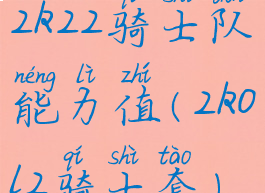 2k22骑士队
néng lì zhí
能力值(2k0
qí shì tào
l2骑士套)